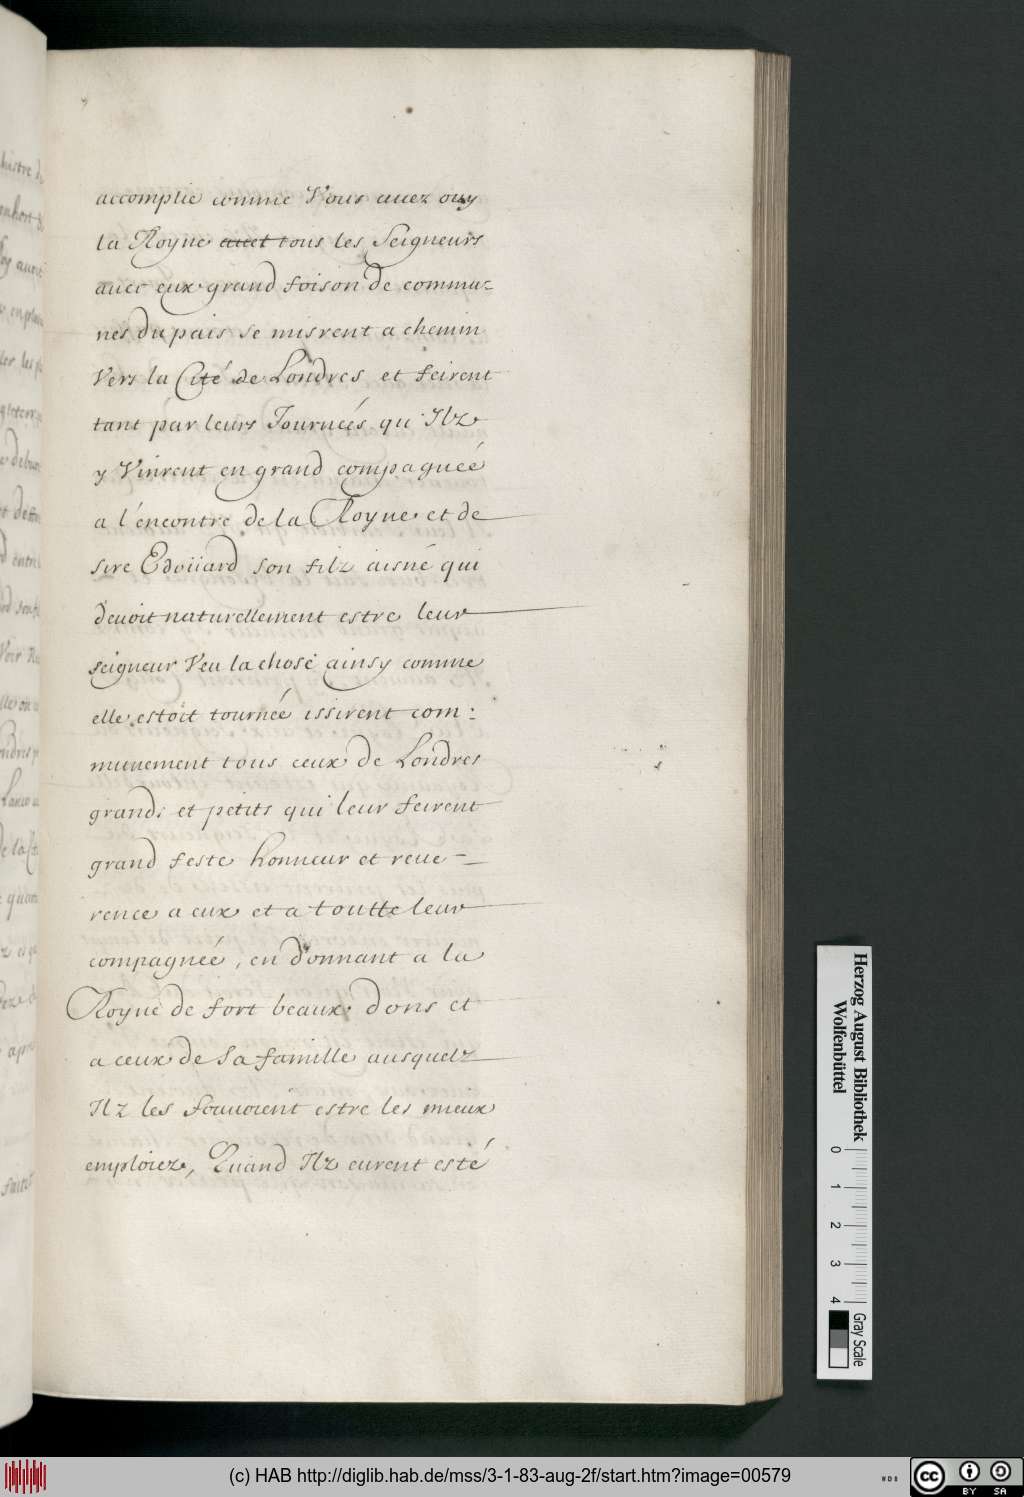 accomplie comme Vous auez ouy
la Royne auec tous les Seigneurs
auec eux grand foison de commu-
nes du pais se misrent a chemin
Vers la Cité de Londres et feirent
tant par leurs Journeés qu'Ilz
y Vinrent en grand compagneé
a l'encontre de la Royne et de
sire Edoüard son filz aisné qui
deuoit naturellement estre leur
seigneur Veu la chose ainsy comme
elle estoit tourneé issirent com:
munement tous ceux de Londres
grands et petits qui leur feirent
grand feste honneur et reue-
rence a eux et a toutte leur
compagneé, en donnant a la
Royne de fort beaux dons et
a ceux de Sa famille ausquelz
Ilz les sauoient estre les mieux
emploiez, Quand Ilz eurent esté
Herzog August Bibliothek
Wolfenbüttel
0 1 2 3 4
Gray Scale
(c) HAB http://diglib.hab.de/mss/3-1-83-aug-2f/start.htm?image=00579
cc BY SA